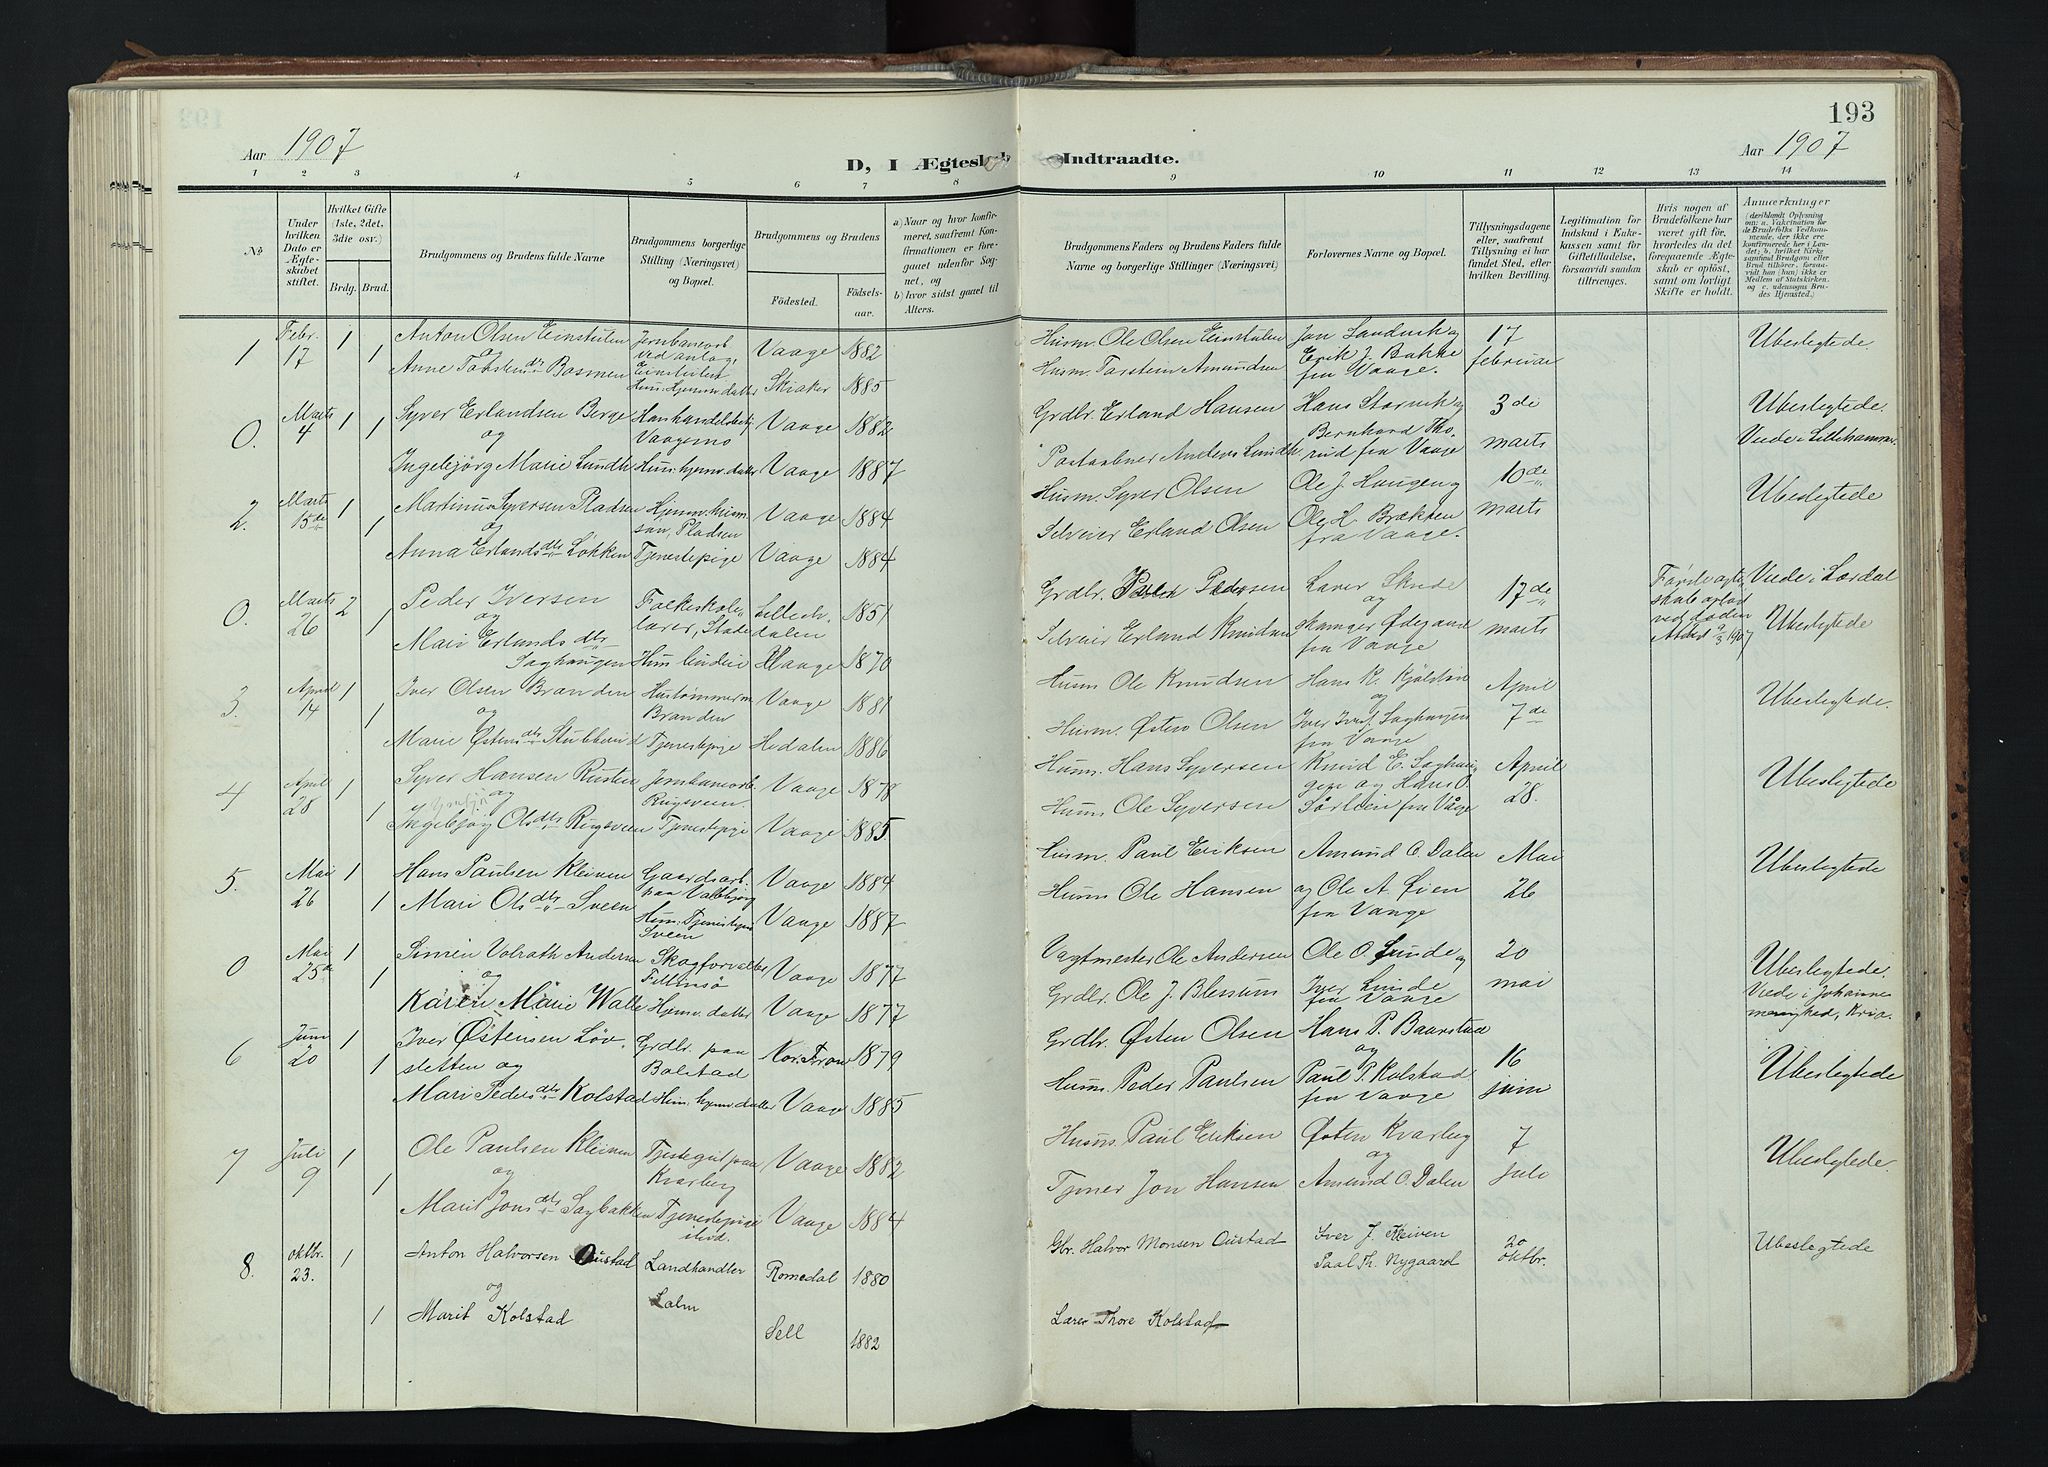 193
Aar 1907
D, I Ægteskab Indtraadte.
Aar 1907
1 2 3 4 5 6 7 8 9 10 11 12 13 14
No.
Under hvilken Dato er Ægteskabet stiftet.
Hvilket Gifte (1ste, 2det, 3die osv.)
Brdg. Brud.
Brudgommens og Brudens fulde Navne
Brudgommens borgerlige Stilling (Næringsvei) og Bopæl.
Brudgommens og Brudens
Födested.
Födselsaar.
a) Naar og hvor konfirmeret, saafremt Konfirmationen er foregaaet udenfor Sognet, og
b) hvor sidst gaaet til Alters.
Brudgommens Faders og Brudens Faders fulde Navne og borgerlige Stillinger (Næringsvei)
Forlovernes Navne og Bopæl.
Tillysningsdagene eller, saafremt Tillysning ei har fundet Sted, efter hvilken Bevilling.
Legitimation for Indskud i Enkekassen samt for Giftetilladelse, forsaavidt saadan tiltrænges.
Hvis nogen af Brudefolkene har været gift før, hvorledes da det foregaaende Ægteskab er oplöst, samt om lovligt Skifte er holdt.
Anmærkninger
1 Febr. 17 1 1
Anton Olsen Einstulen
og
Anne Torstensdtr Bosmen
Jernbanearb. ved anlag, Einstulen
Hus. Hjemmv. datter
Vaage 1882
Skiaker 1885
Husm. Ole Olsen Einstulen
Husm. Torstein Amundsen
Jon Sandvik og
Erik J. Bakke
fra Vaage.
17 februar
Ubeslegtede.
0. Marts 4 1 1
Syver Erlandsen Berge
og
Ingebjørg Marie Lundh
Vaagemo
Hun: hjemv. datter
Vaage 1882
Vaage 1887
Grdbr. Erland Hansen
Postaabner Anders Lundh
Hans Storvik og
Bernhard Thorud fra Vaage
3de marts
Ubeslegtede.
Viede i Lillehammer.
2. Marts 15de 1 1
Martinus Syversen Pladsen
og
Anna Erlandsdtr Løkken
Hjemmv. husmsøn, Pladsen
Tjenestepige
Vaage 1884
Vaage 1884
Husm. Syver Olsen
Selveier Erland Olsen
Ole J. Haugen og
Ole H. Brækken
fra Vaage.
10de marts
Ubeslegtede
0. Marts 26 2 1
Peder Iversen
og
Mari Erlandsdtr
Saghaugen
Folkeskolelærer, Stade
Hun
Vaage
1851
1870
Grdbr. Pedersen
Selveier Erland Knudsen
Lærer Skule
og
Ødegaard
fra Vaage
17de marts
Første egteskab opløst ved døden
Attest 9/3 1907
Viede i Lærdal
Ubeslegtede
3. April 14 1 1
Iver Olsen Branden
og
Marie Østensdtr Stubberud
Hustømmerm. Branden
Tjenestepige
Vaage 1881
Hedalen 1886
Husm. Ole Knudsen
Husm. Østen Olsen
Hans K. Kjølstad
og
Iver Iversen Saghaugen
fra Vaage
April 7de
Ubeslegtede.
4 April 28 1 1
Syver Hansen Rusten
og
Ingebjørg Olsdtr Rugsveen
Jernbanearb. Rugsveen.
Tjenestepige
Vaage 1878
Vaage 1885.
Husm. Hans Syversen
Husm Ole Syversen
Knud E. Saghaugen og Hans O.
Sørlien fra Vaage
April 28.
Ubeslegtede
5. Mai 26 1 1
Hans Paulsen Kleiven
Mari Olsdtr Sveen
Gaardsarb. paa Valbjør
Hun: Tjenestepige Sveen
Vaage 1884
Vaage 1887
Husm. Paul Eriksen
Husm Ole Hansen
Amund O. Dalen
og Ole A. Øien
fra Vaage
Mai 26
Ubeslegtede
0 Mai 25de 1 1
Simen Volrath Andersen
og
Karen Marie Walle
Skogforvalter
Hjemv. datter
Vaage 1877
Vaage 1877
Vagtmester Ole Andersen
Grdbr. Ole J. Blessum
Ole O. Sunde og
Iver Sunde
fra Vaage
20 mai
Ubeslegtede.
Viede i Johannes menighed, Kria.
6 Juni 20 1 1
Iver Østensen Løvsletten og
Mari Pedersdtr Kolstad
Grdbr. paa Bolstad
Hun: hjemv. datter
Nor. Fron 1879
Vaage 1885
Grdbr. Østen Olsen
Husm. Peder Paulsen
Hans P. Baarstad
og
Paul P. Kolstad
fra Vaage
16 juni
Ubeslegtede
7 Juli 9 1 1
Ole Paulsen Kleiven
og
Marit Jonsdtr Sagbakken
Tjenestegut paa Kvarberg
Tjenestepige ibid.
Vaage 1882
Vaage 1884
Husm. Paul Eriksen
Tjener Jon Hansen
Østen Kvarberg
og
Amund O. Dalen
7 Juli
Ubeslegtede.
8. oktbr. 23. 1 1
Anton Halvorsen Oustad
og
Marit Kolstad
Landhandler
Lalm
Romedal 1880
Sell 1882
Gbr. Halvor Monsen Oustad
Lærer Thore Kolstad
Iver J. Kleiven
Paal Th. Nygaard
20 oktbr.
Ubeslegtede